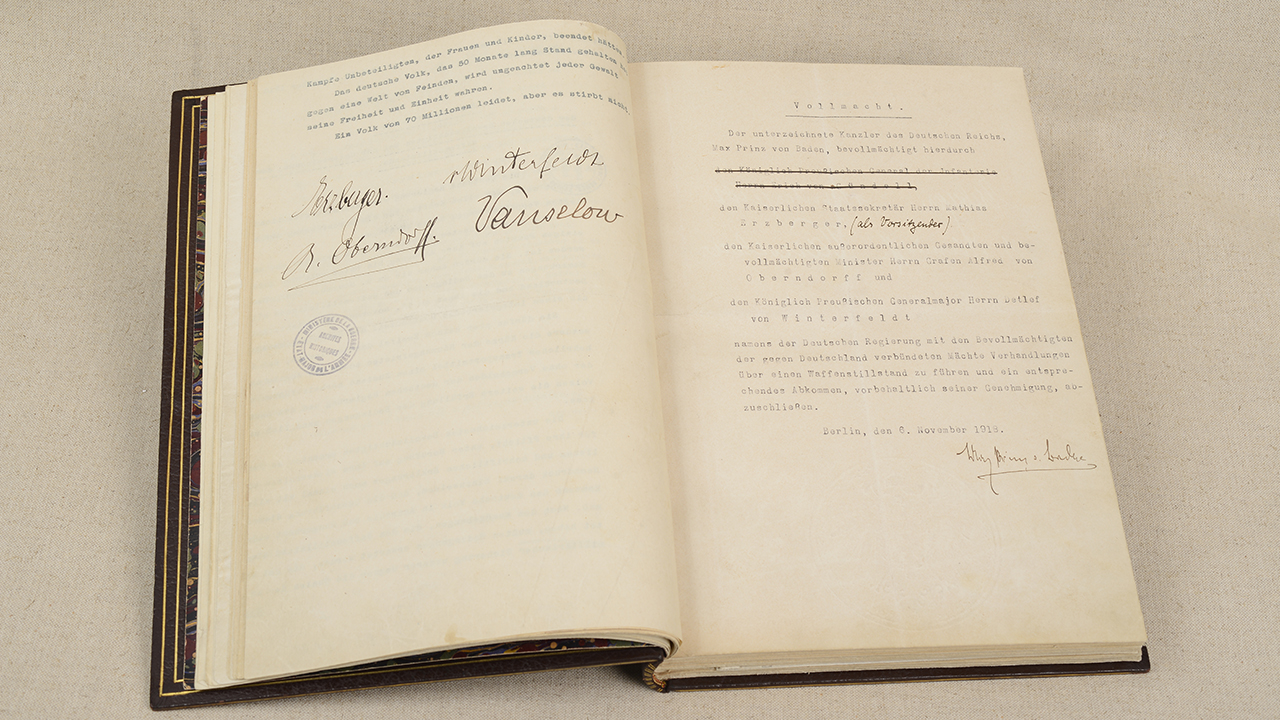 Kampfe Unbeteiligten, der Frauen und Kinder, beendet hätten.
Das deutsche Volk, das 50 Monate lang Stand gehalten
gegen eine Welt von Feinden, wird ungeachtet jeder Gewalt
seine Freiheit und Einheit wahren.
Ein Volk von 70 Millionen leidet, aber es stirbt nicht.
Erzberger.
vWinterfeldt
R. Oberndorff.
Vanselow
Vollmacht.
Der unterzeichnete Kanzler des Deutschen Reichs,
Max Prinz von Baden, bevollmächtigt hierdurch
den Königlich Preußischen General der Infanterie
den Kaiserlichen Staatssekretär Herrn Mathias
Erzberger, (als Vorsitzender)
den Kaiserlichen außerordentlichen Gesandten und be-
vollmächtigten Minister Herrn Grafen Alfred von
Oberndorff und
den Königlich Preußischen Generalmajor Herrn Detlef
von Winterfeldt
namens der Deutschen Regierung mit den Bevollmächtigten
der gegen Deutschland verbündeten Mächte Verhandlungen
über einen Waffenstillstand zu führen und ein entspre-
chendes Abkommen, vorbehaltlich seiner Genehmigung, ab-
zuschließen.
Berlin, den 6. November 1918.
Max Prinz v. Baden